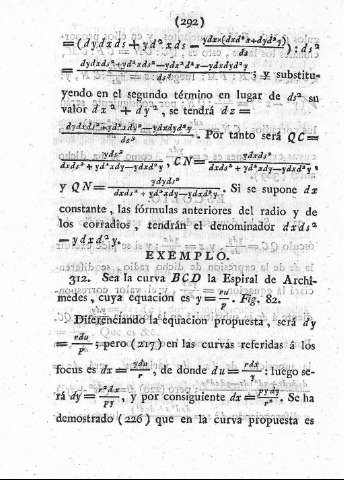 (292)
= (dydxds + yd²xds − ydx×(dxd²x+dyd²y)/ds) : ds²
= dydxds²+yd²xds²−ydx²d²x−ydxdyd²y/ds³; y substitu-
yendo en el segundo término en lugar de ds² su
valor dx² + dy², se tendrá dz =
dydxds²+yd²xdy²−ydxdyd²y/ds³. Por tanto será QC =
yds³/dxds²+yd²xdy−ydxd²y, CN = ydxds²/dxds²+yd²xdy−ydxd²y,
y QN = ydyds²/dxds²+yd²xdy−ydxd²y. Si se supone dx
constante, las fórmulas anteriores del radio y de
los corradios, tendrán el denominador dxds²
− ydxd²y.
EXEMPLO.
312. Sea la curva BCD la Espiral de Archi-
medes, cuya equacion es y = ru/p. Fig. 82.
Diferenciando la equacion propuesta, será dy
= rdu/p; pero (217) en las curvas referidas á los
focus es dx = ydu/r, de donde du = rdx/y: luego se-
rá dy = r²dx/py, y por consiguiente dx = pydy/r². Se ha
demostrado (226) que en la curva propuesta es